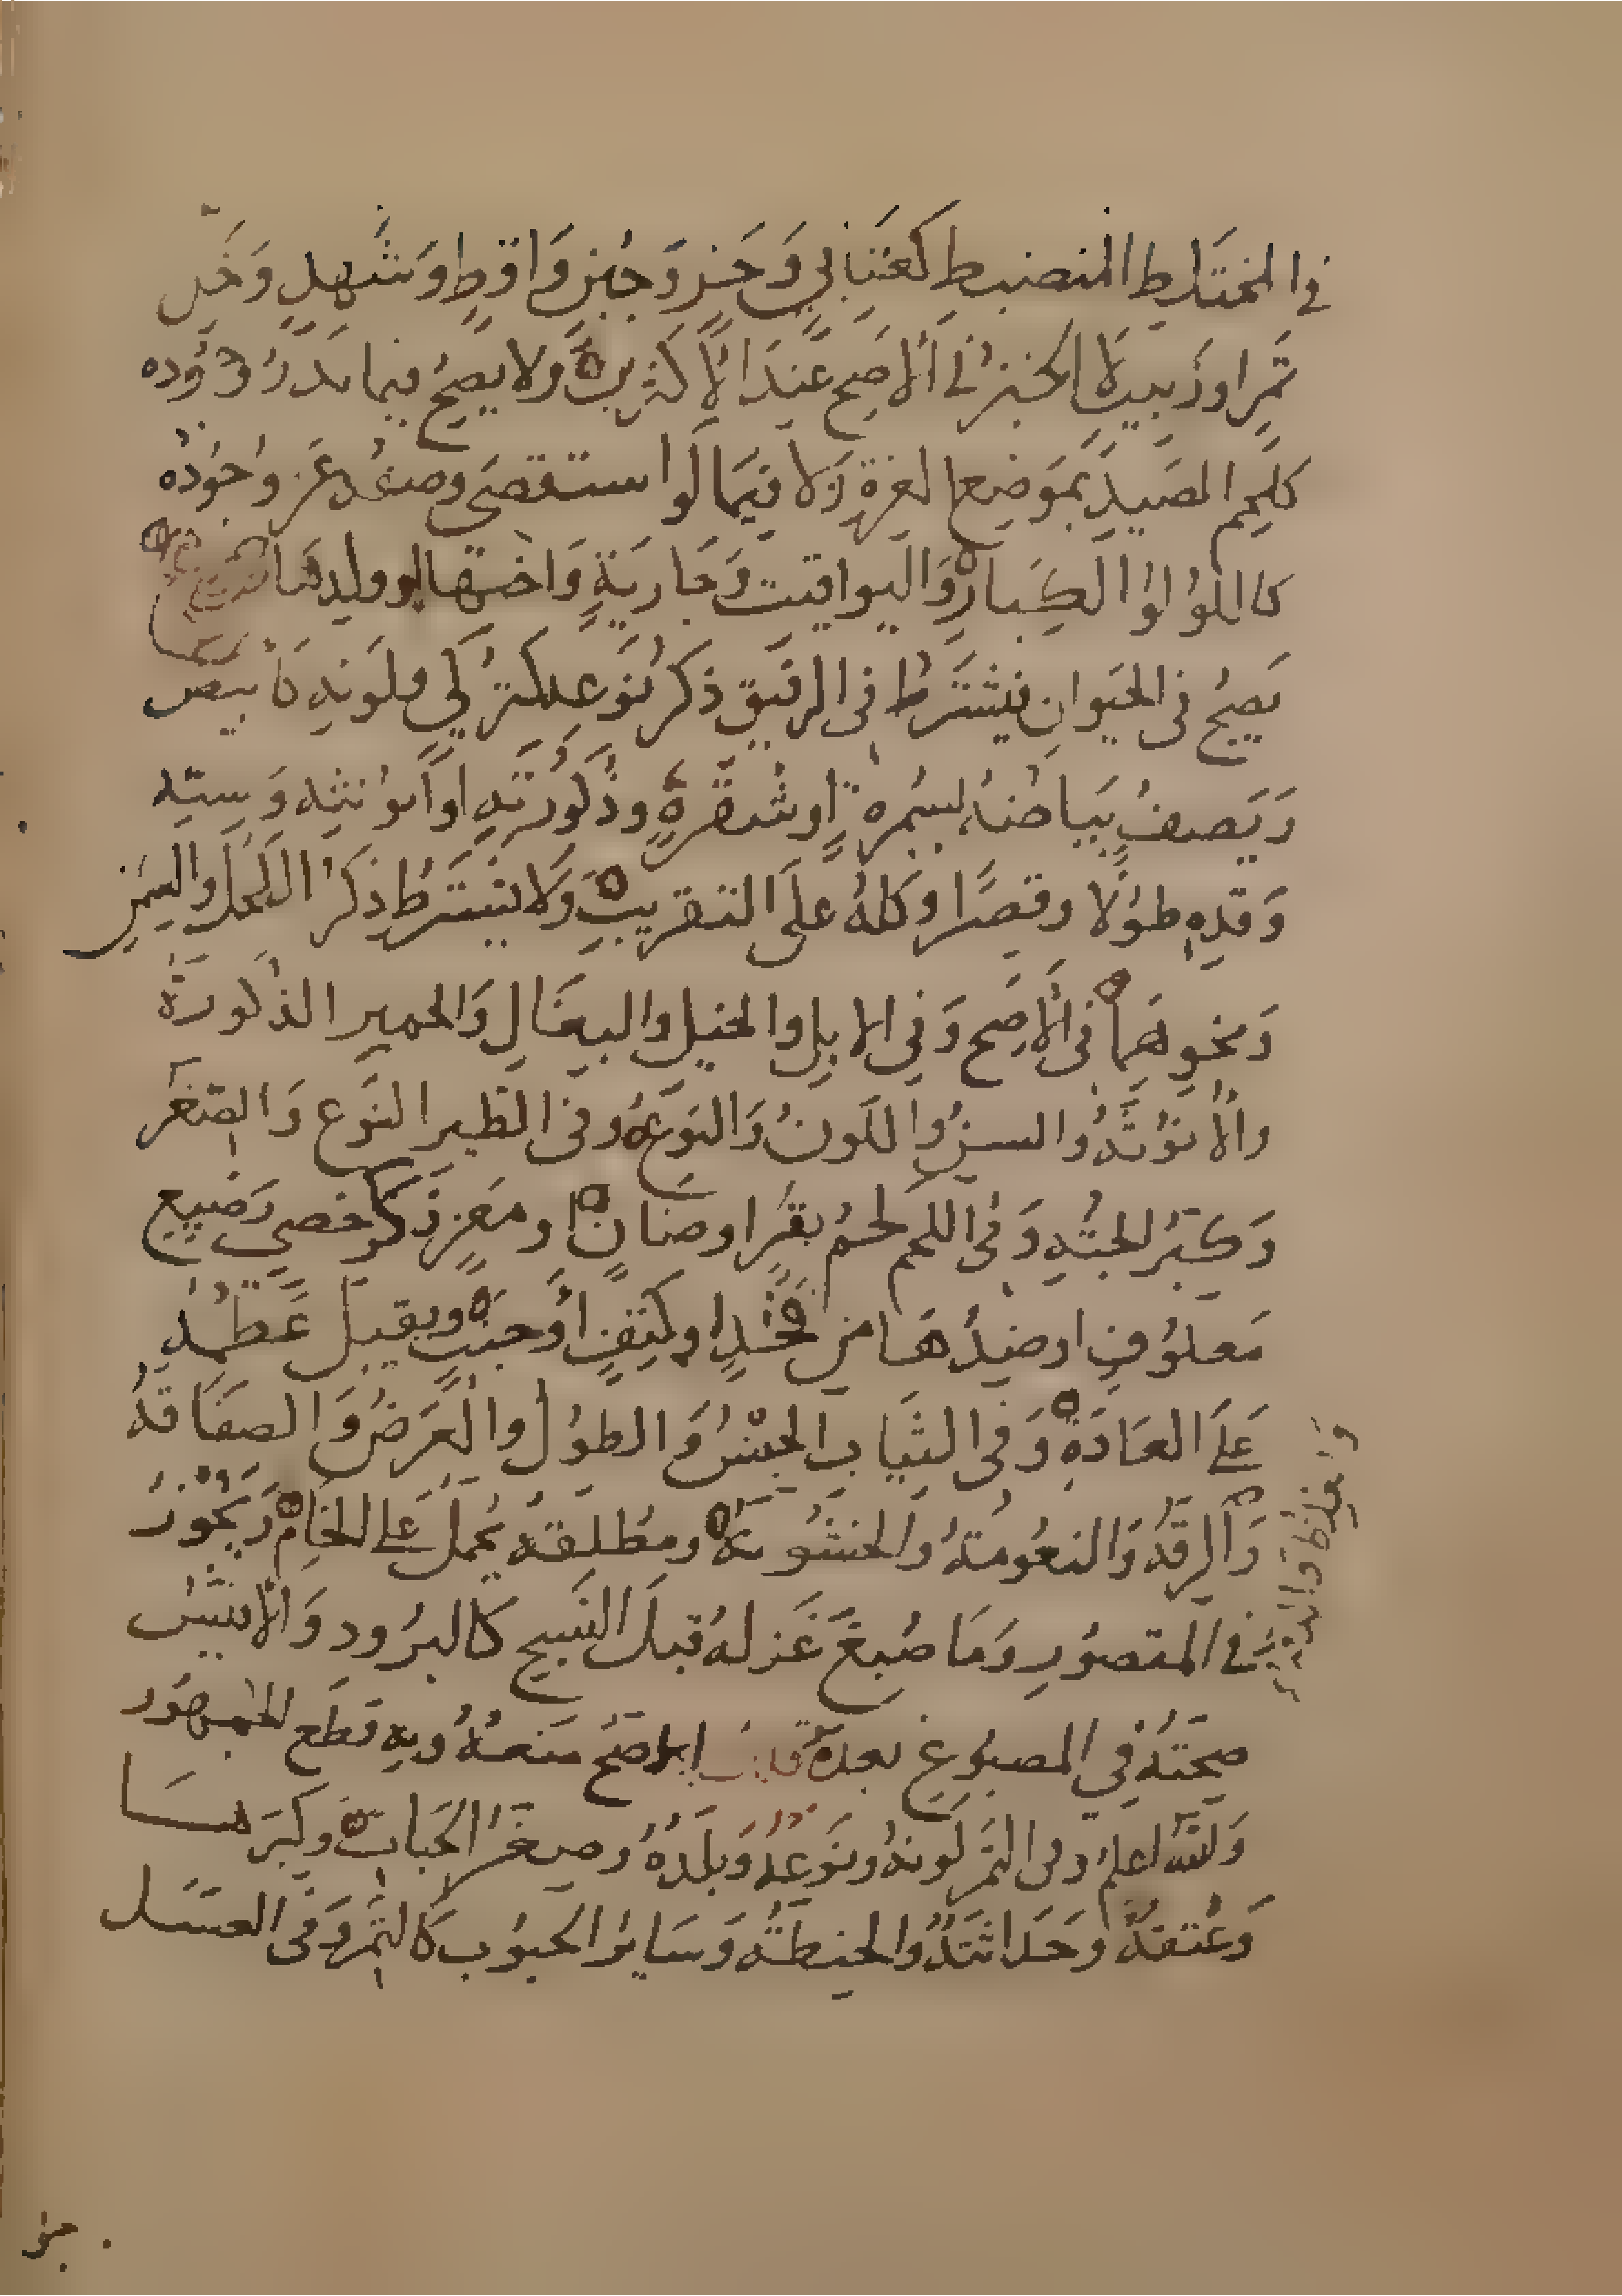 في المختلط المنضبط كعتابي وخز وجبن واقط وشهد وخل
تمر او زبيب لا الخبز في الاصح عند الاكثرين ولا يصح فيما ندر وجوده
كلحم الصيد بموضع العزة ولا فيما لو استقصى وصفه عز وجوده
كاللؤلؤ الكبار واليواقيت وجارية واختها او ولدها فرع
يصح في الحيوان فيشترط في الرقيق ذكر نوعه كتركي ولونه كابيض
ويصف بياضه بسمرة او شقرة وذكورته او انوثته وسنه
وقده طولا وقصرا وكله على التقريب ولا يشترط ذكر الكحل والسمن
ونحوهما في الاصح وفي الابل والخيل والبغال والحمير الذكورة
والانوثة والسن واللون والنوع وفي الطير النوع والصغر
وكبر الجثة وفي اللحم لحم بقر او ضان او معز ذكر خصي رضيع
معلوف او ضدها من فخذ او كتف او جنب ويقبل عظمه
على العادة وفي الثياب الجنس والطول والعرض والصفاقة
والرقة والنعومة والخشونة ومطلقه يحمل على الخام ويجوز
في المقصور وما صبغ غزله قبل النسيج كالبرود والاقيس
صحته في المصبوغ بعده قلت الاصح منعه وبه قطع الجمهور
والله اعلم وفي التمر لونه ونوعه وبلده وصغر الحبات وكبرها
وعتقه وحداثته والحنطة وسائر الحبوب كالتمر وفي العسل
والغلظ والدقة